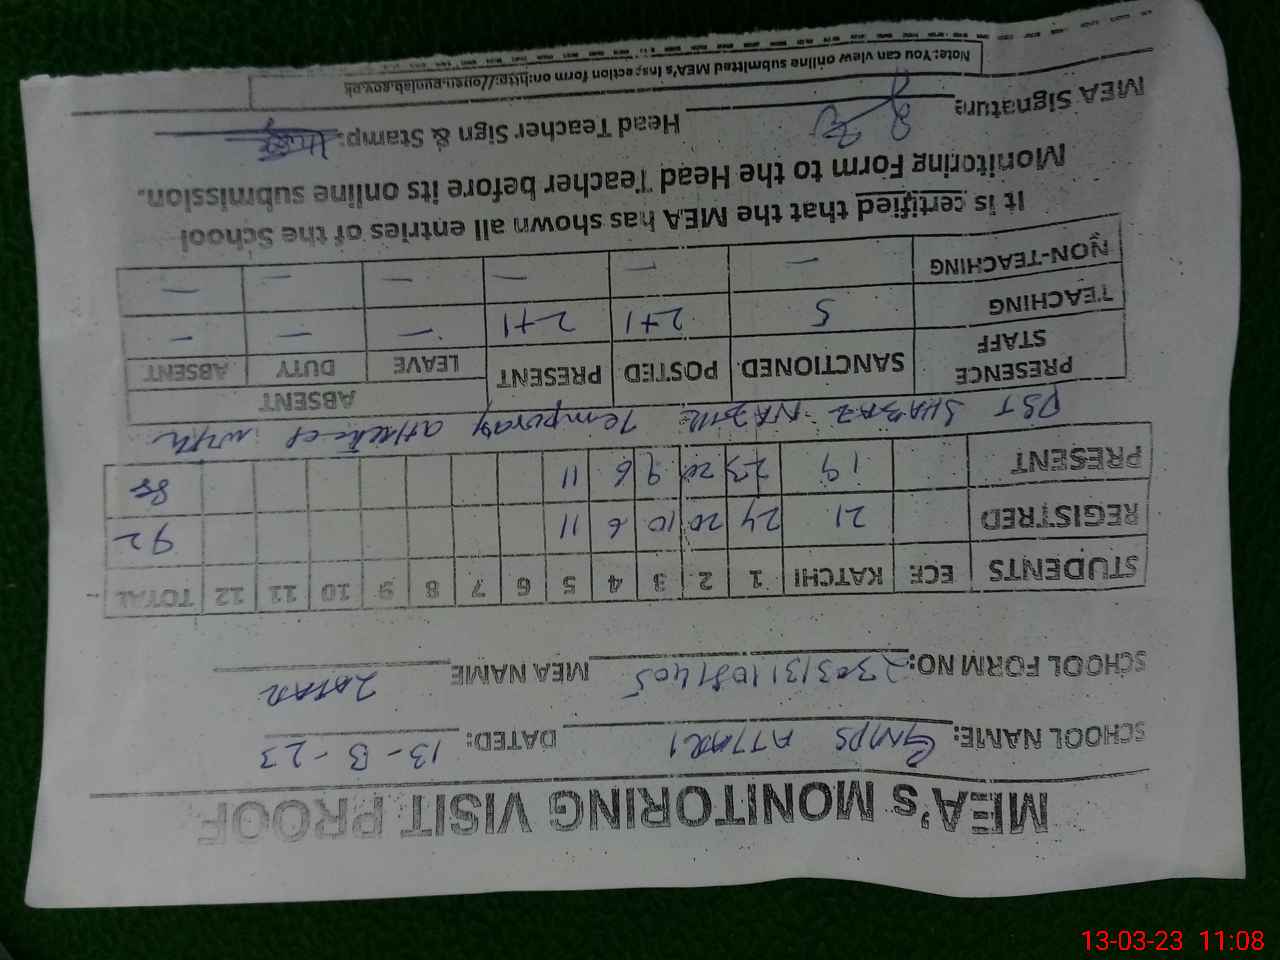 MEA's MONITORING VISIT PROOF
SCHOOL NAME: GMPS ATTARI DATED: 13-3-23
SCHOOL FORM NO: MEA NAME
STUDENTS ECE KATCHI 1 2 3 4 5 6 7 8 9 10 11 12 TOTAL
REGISTRED 21 24 20 10 6 11 92
PRESENT 19 23 20 9 6 11 88
PST SHABAZ NAZIR Temporay attached with
PRESENCE STAFF SANCTIONED POSTED PRESENT ABSENT
LEAVE DUTY ABSENT
TEACHING 5 2+1 2+1 – – –
NON-TEACHING – – – – – –
It is certified that the MEA has shown all entries of the School
Monitoring Form to the Head Teacher before its online submission.
MEA Signature Head Teacher Sign & Stamp:
Note: You can view online submitted MEA's Inspection form on:http://open.punjab.gov.pk
13-03-23 11:08